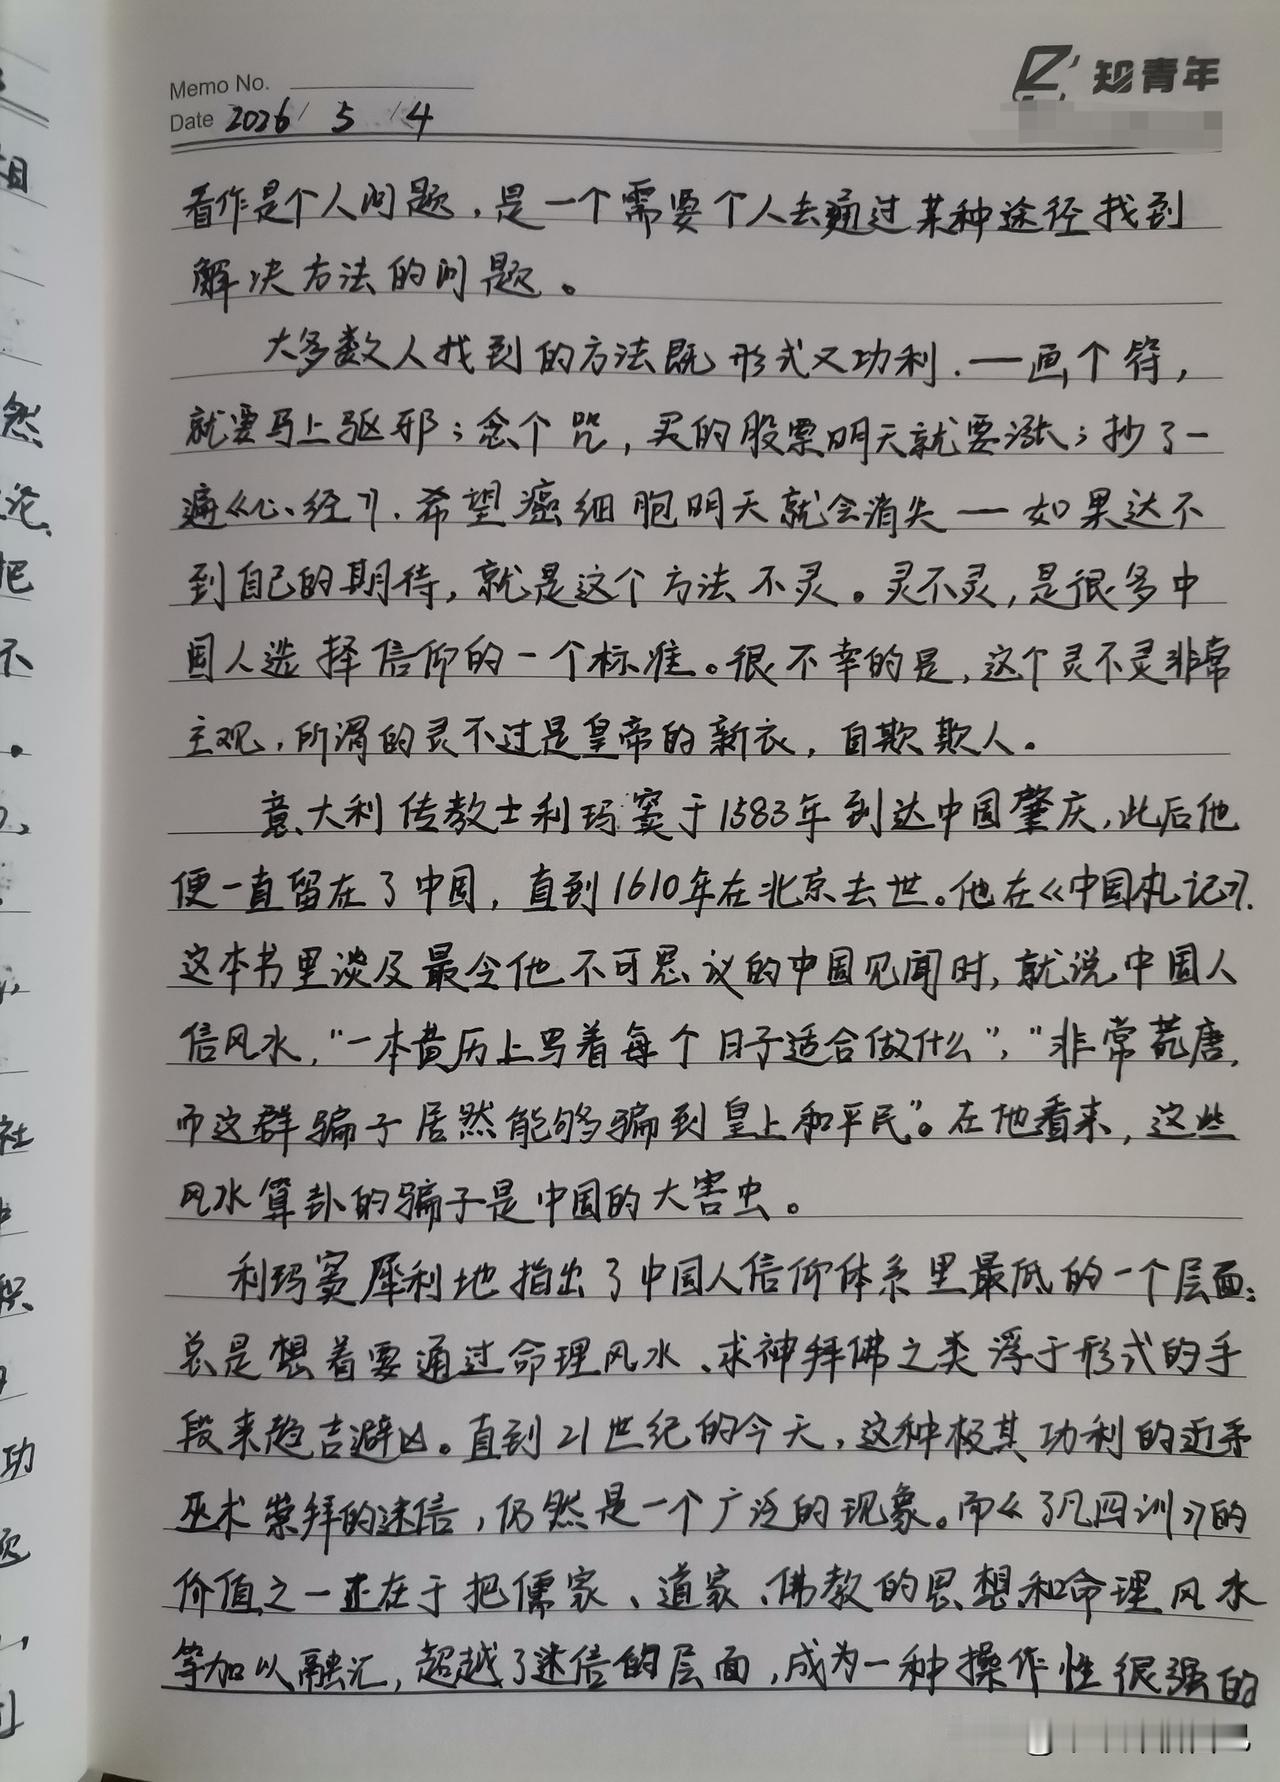 Memo No.
知青年
Date 2026/ 5 /4
看作是个人问题，是一个需要个人去通过某种途径找到
解决方法的问题。
大多数人找到的方法既形式又功利．一一画个符，
就要马上驱邪；念个咒，买的股票明天就要涨；抄了一
遍《心经》．希望癌细胞明天就会消失一一如果达不
到自己的期待，就是这个方法不灵。灵不灵，是很多中
国人选择信仰的一个标准。很不幸的是，这个灵不灵非常
主观，所谓的灵不过是皇帝的新衣，自欺欺人。
意大利传教士利玛窦于1583年到达中国肇庆，此后他
便一直留在了中国，直到1610年在北京去世。他在《中国札记》
这本书里谈及最令他不可思议的中国见闻时，就说中国人
信风水，“一本黄历上写着每个日子适合做什么”，“非常荒唐，
而这群骗子居然能够骗到皇上和平民”。在他看来，这些
风水算卦的骗子是中国的大害虫。
利玛窦犀利地指出了中国人信仰体系里最低的一个层面：
总是想着要通过命理风水、求神拜佛之类浮于形式的手
段来趋吉避凶。直到21世纪的今天，这种极其功利的近乎
巫术崇拜的迷信，仍然是一个广泛的现象。而《了凡四训》的
价值之一正在于把儒家、道家、佛教的思想和命理风水
等加以融汇，超越了迷信的层面，成为一种操作性很强的